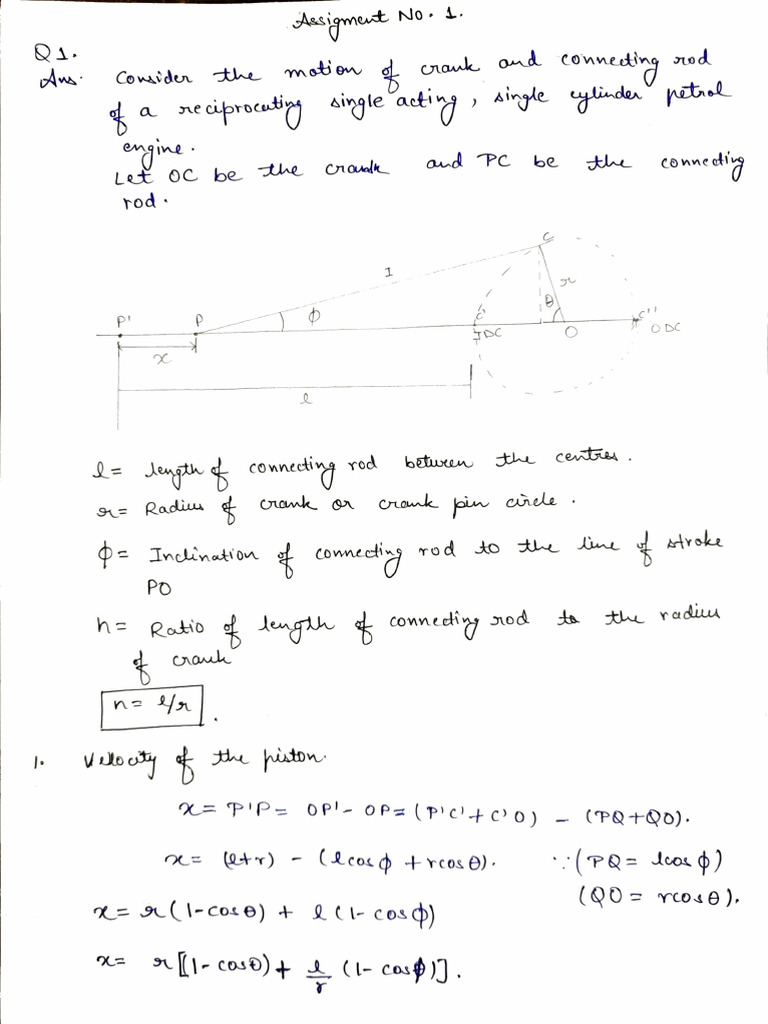 Assigment No. 1.
Q1.
Ans. Consider the motion of crank and connecting rod
of a reciprocuting single acting, single cylinder petrol
engine.
Let OC be the crank and PC be the connecting
rod.
C
l
r
P'
P
ϕ
θ
C'
C''
x
IDC
O
ODC
l
l = length of connecting rod between the centres.
r = Radius of crank or crank pin circle.
ϕ = Inclination of connecting rod to the line of stroke
PO
n = Ratio of length of connecting rod to the radius
of crank
n = l/r .
1. Velocity of the piston.
x = P'P = OP' - OP = (P'C' + C'O) - (PQ+QO).
x = (l+r) - (lcosϕ + rcosθ). ∵ (PQ = lcosϕ)
(QO = rcosθ).
x = r(1-cosθ) + l(1-cosϕ)
x = r[(1-cosθ) + l/r (1-cosϕ)].